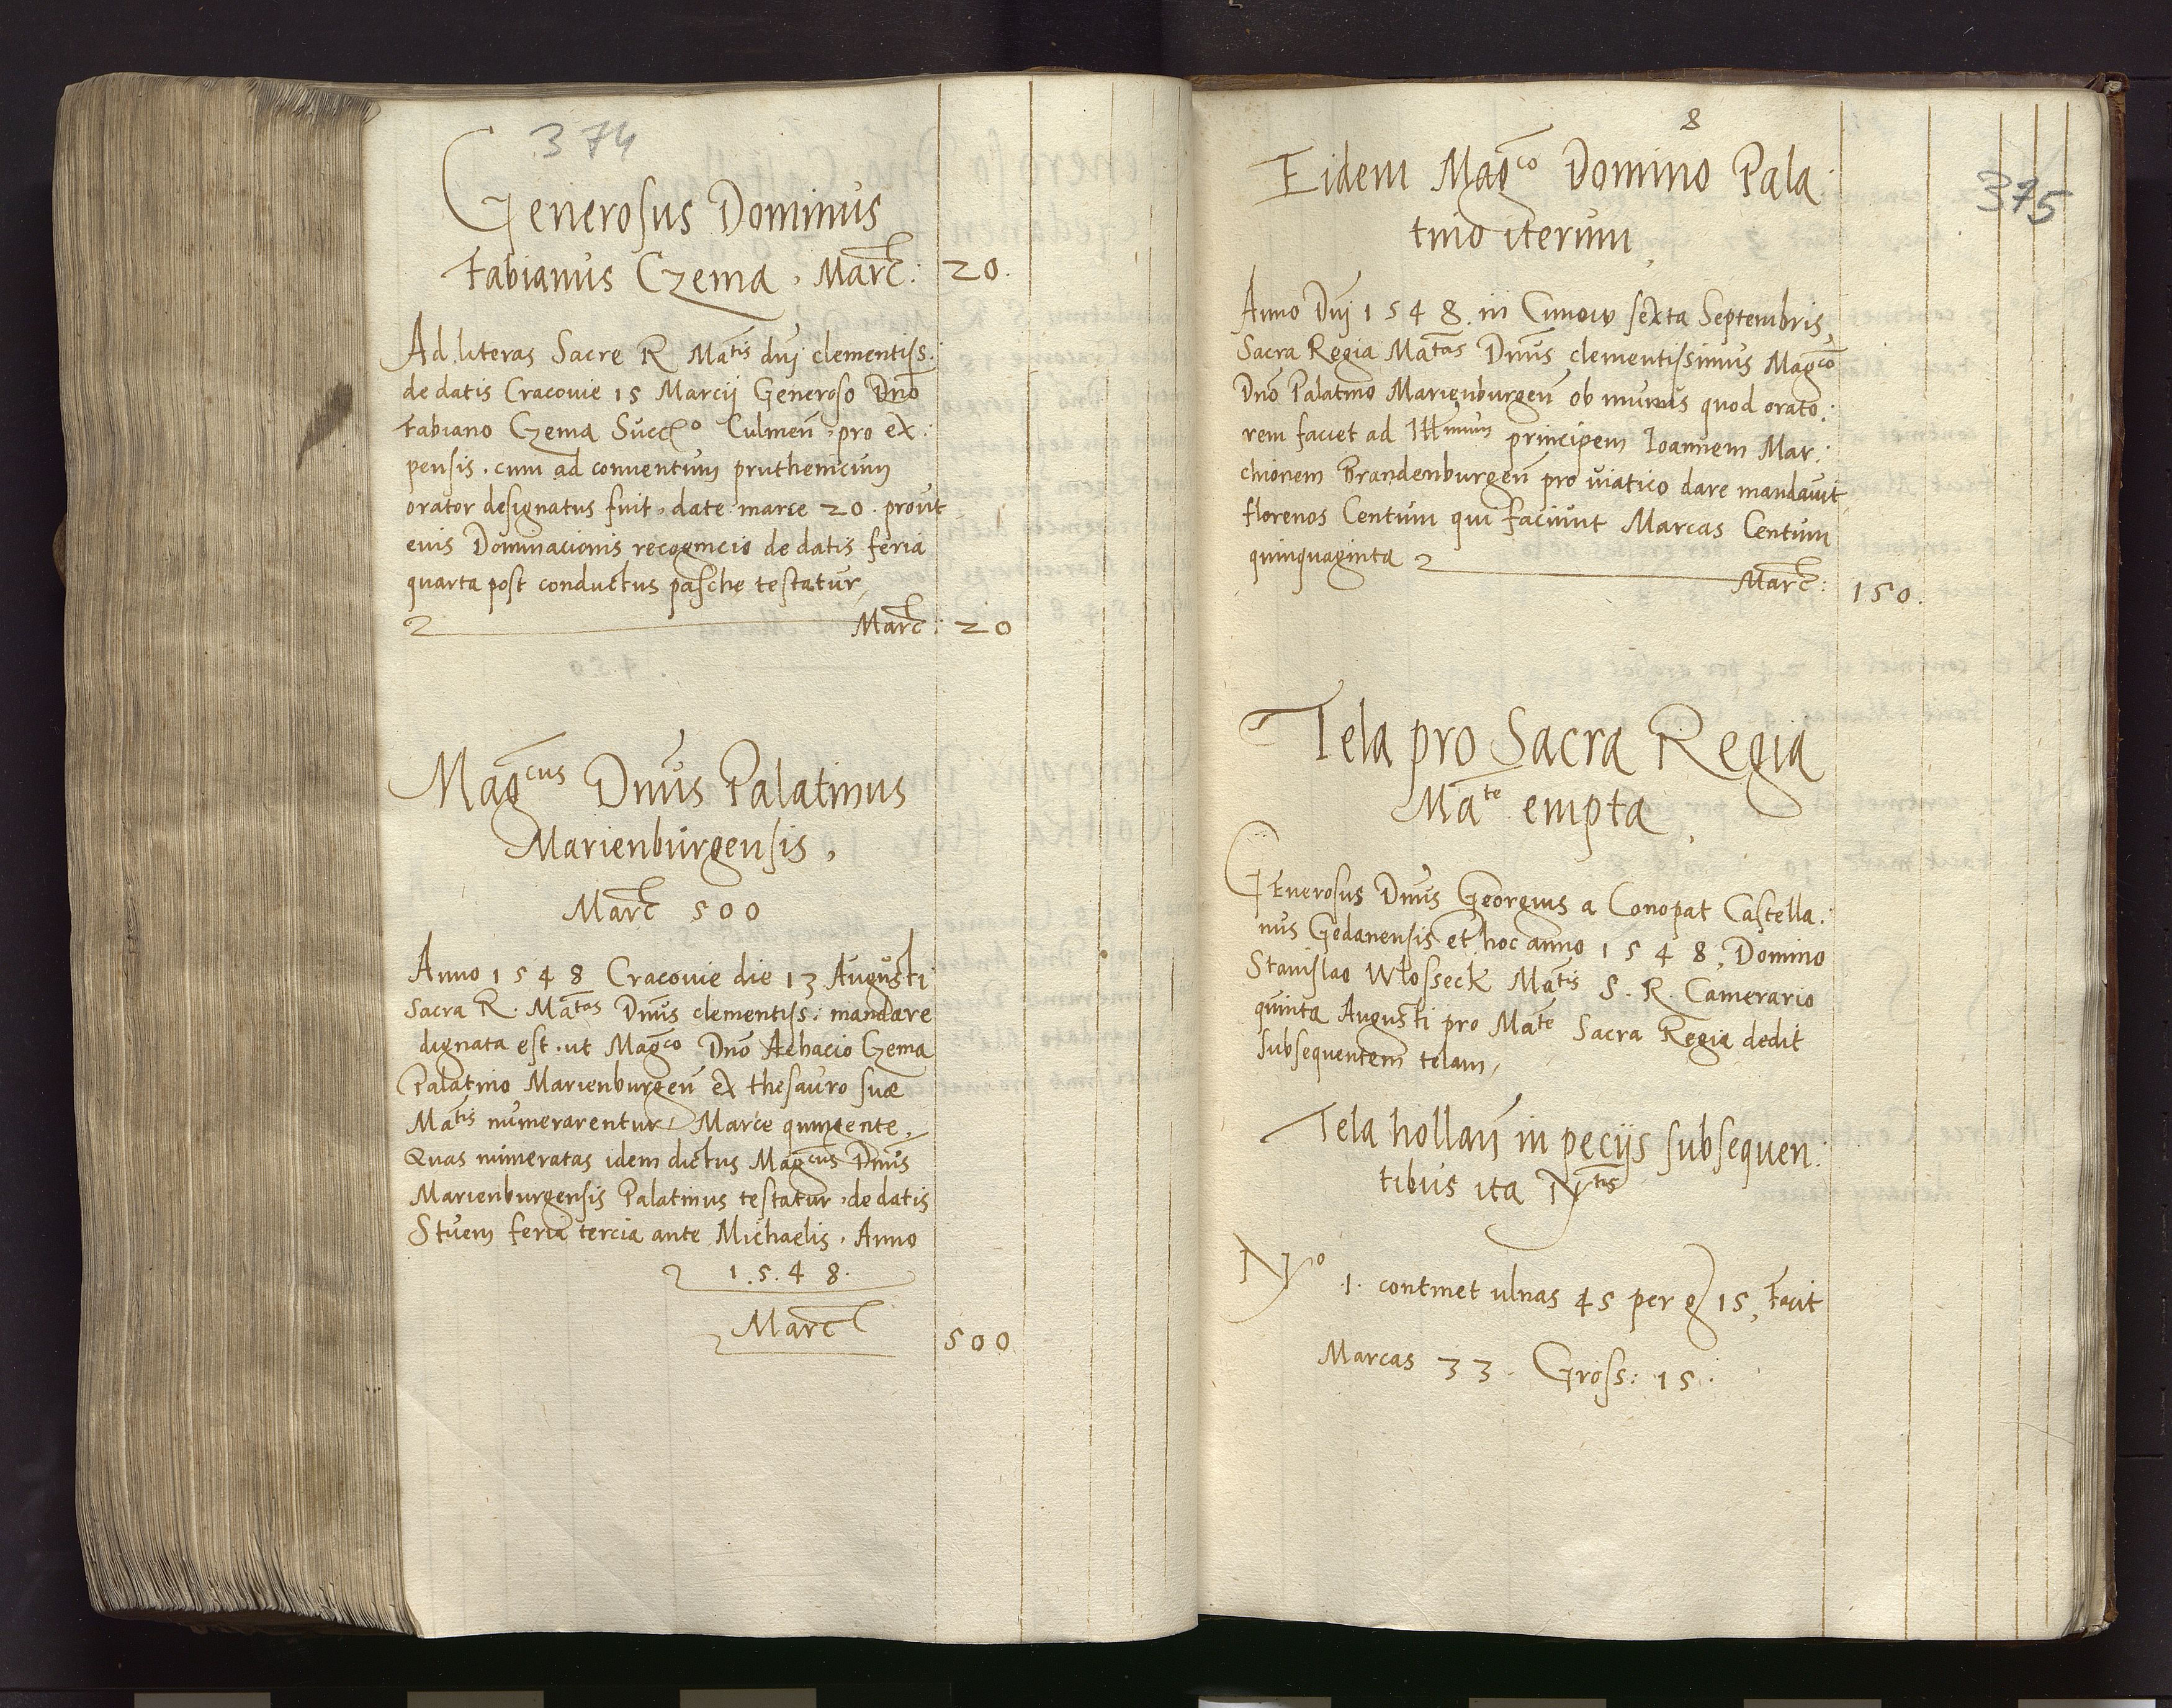 374
Generosus Dominus
Fabianus Czema, Marc: 20.
Ad literas Sacre R Matis dnj clementiss.
de datis Cracouie 15 Marcij Generoso Dno
Fabiano Czema Succo Culmen pro ex:
pensis. cum ad conuentum pruthenicum
orator designatus fuit, date marce 20. prout
eius Dominacionis recognicio de datis feria
quarta post conductus pasche testatur,
Marc: 20
Magcus Dnus Palatinus
Marienburgensis,
Marc 500
Anno 1548 Cracouie die 13 Augusti
Sacra R. Matas Dnus clementiss: mandare
dignata est. ut Magco Dno Achacio Czema
Palatino Marienburgen ex thesauro suae
Matis numerarentur Marce quingente,
Quas numeratas idem dictus Magcus Dnus
Marienburgensis Palatinus testatur, de datis
Stuem feria tercia ante Michaelis. Anno
1.5.4 8.
Marc 500
8
375
Eidem Magco Domino Pala:
tino iterum,
Anno Dnj 1548. in Cunow sexta Septembris,
Sacra Regia Matas Dnus clementissimus Magco
Dno Palatino Marienburgen ob munus quod orato:
rem faciet ad Illmum principem Ioannem Mar:
chionem Brandenburgen pro uiatico dare mandauit
florenos Centum qui faciunt Marcas Centum
quinquaginta
Marc: 150.
Tela pro Sacra Regia
Mate empta,
Generosus Dnus Georgius a Conopat Castella:
nus Gedanensis et hoc anno 1548, Domino
Stanislao Wlosseck Matis S. R. Camerario
quinta Augusti pro Mate Sacra Regia dedit
subsequentem telam,
Tela hollan in pecijs subsequen:
tibus ita Nrtis
Nro .1. continet ulnas 45 per g 15, Facit
Marcas 33. Gross: 15.